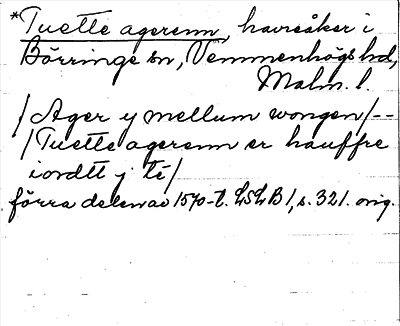 *Tuette agerenn, havreåker i
Börringe sn, Vemmenhögs hd,
Malm. l.
/Ager y mellum wongen/--
/Tuette agerenn er hauffre
iordtt y ti/
förra delen av 1570-t. LSLB1, s. 321. orig.